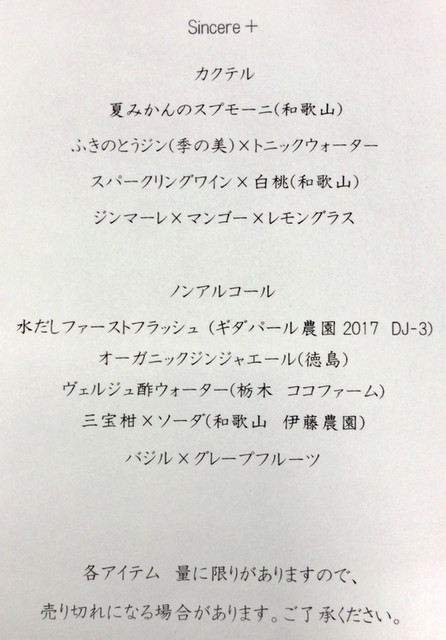 Sincere＋
カクテル
夏みかんのスプモーニ(和歌山)
ふきのとうジン(季の美)×トニックウォーター
スパークリングワイン×白桃(和歌山)
ジンマーレ×マンゴー×レモングラス
ノンアルコール
水だしファーストフラッシュ (ギダパール農園2017 DJ-3)
オーガニックジンジャエール(徳島)
ヴェルジュ酢ウォーター(栃木 ココファーム)
三宝柑×ソーダ(和歌山 伊藤農園)
バジル×グレープフルーツ
各アイテム 量に限りがありますので、
売り切れになる場合があります。ご了承ください。